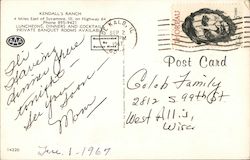 KENDALL'S RANCH
4 Miles East of Sycamore, Ill. on Highway 64
Phone 895-9421
LUNCHEONS, DINNERS AND COCKTAILS
PRIVATE BANQUET ROOMS AVAILABLE
AAA
DE KALB, IL
Hi -
Having
dinner here
tonight -
See you soon
Mom
Post Card
Golob Family
2812 S 99th St
West Allis,
Wisc.
14220
1-1967